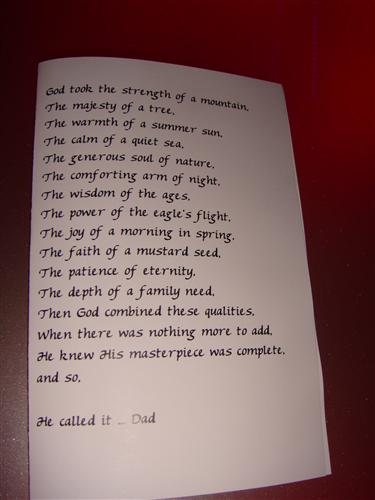 God took the strength of a mountain,
The majesty of a tree,
The warmth of a summer sun,
The calm of a quiet sea,
The generous soul of nature,
The comforting arm of night,
The wisdom of the ages,
The power of the eagle's flight,
The joy of a morning in spring,
The faith of a mustard seed,
The patience of eternity,
The depth of a family need,
Then God combined these qualities,
When there was nothing more to add,
He knew His masterpiece was complete,
and so,
He called it ... Dad